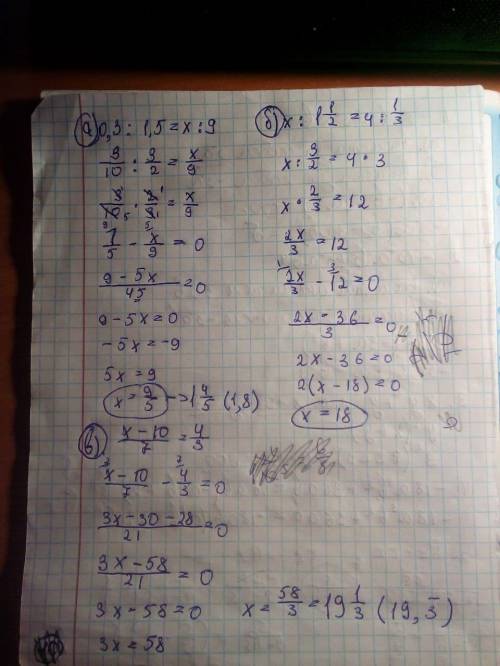 а) 0,3 : 1,5 = x : 9
3/10 : 3/2 = x/9
3/10 · 2/3 = x/9
1/5 - x/9 = 0
(9 - 5x)/45 = 0
9 - 5x = 0
-5x = -9
5x = 9
x = 9/5 -> 1 4/5 (1,8)
б) x : 1 1/2 = 4 : 1/3
x : 3/2 = 4 · 3
x · 2/3 = 12
2x/3 = 12
2x/3 - 12 = 0
(2x - 36)/3 = 0
2x - 36 = 0
2(x - 18) = 0
x = 18
в) (x - 10)/7 = 4/3
(x - 10)/7 - 4/3 = 0
(3x - 30 - 28)/21 = 0
(3x - 58)/21 = 0
3x - 58 = 0
3x = 58
x = 58/3 = 19 1/3 (19, 3̅)